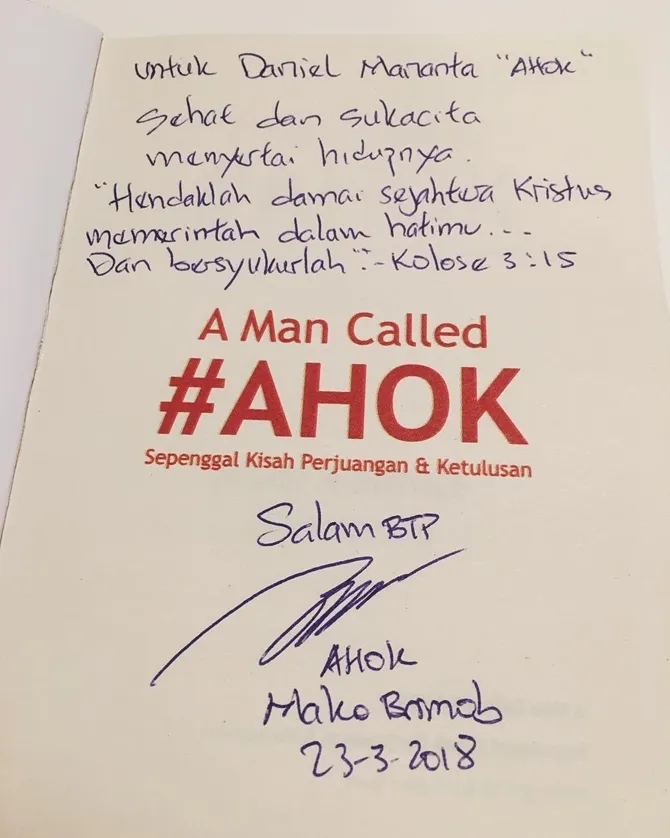 untuk Daniel Mananta "AHok"
Sehat dan sukacita
menyertai hidupnya.
"Hendaklah damai sejahtera Kristus
memerintah dalam hatimu...
Dan bersyukurlah".-Kolose 3:15
A Man Called
#AHOK
Sepenggal Kisah Perjuangan & Ketulusan
Salam BTP
AHOK
Mako Brimob
23-3-2018